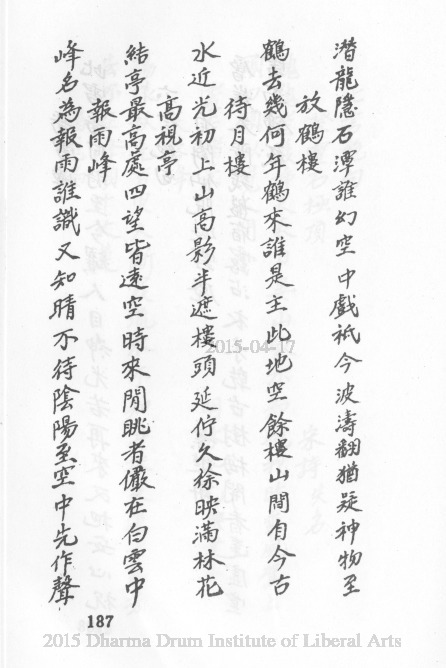 潛龍隱石潭誰幻空中戲祇今波濤翻猶疑神物至
放鶴樓
鶴去幾何年鶴來誰是主此地空餘樓山間自今古
待月樓
水近光初上山高影半遮樓頭延佇久徐映滿林花
高視亭
結亭最高處四望皆遠空時來閒眺者儼在白雲中
報雨峰
峰名為報雨誰識又知晴不待陰陽至空中先作聲
187
2015-04-17
2015 Dharma Drum Institute of Liberal Arts